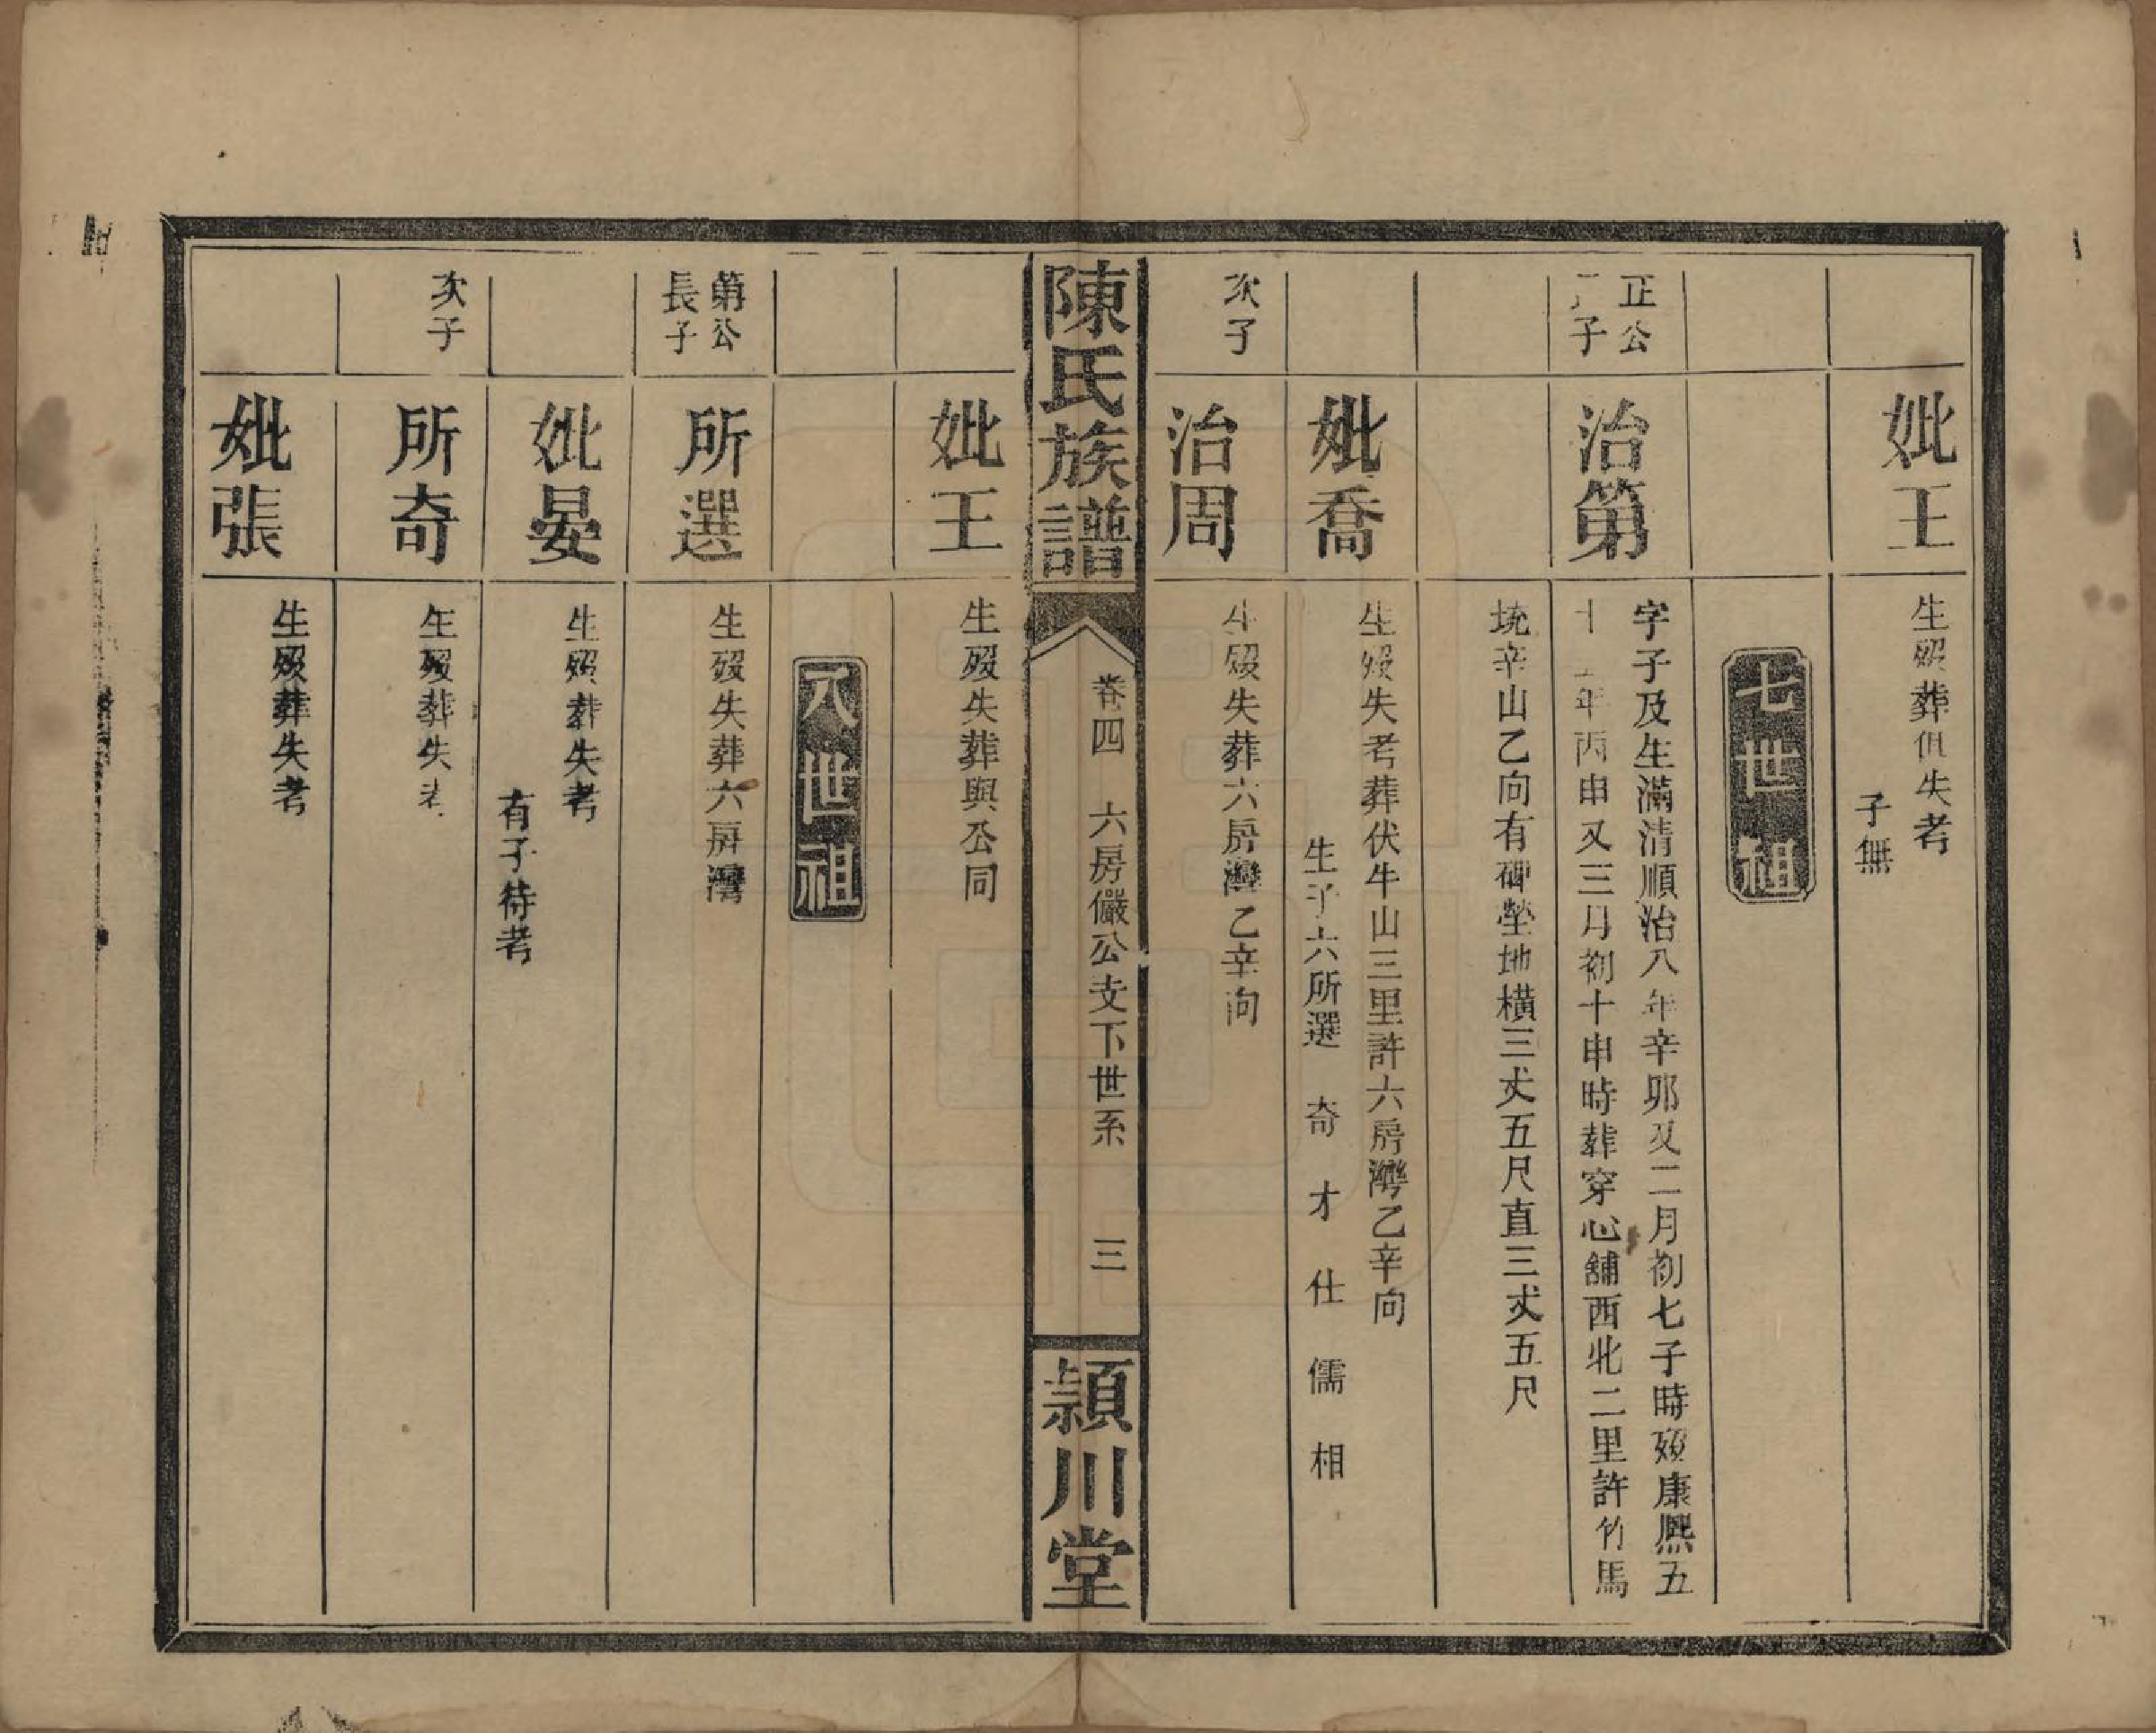 妣王
生歿葬俱失考
子無
七世祖
正公
子
治第
字子及生滿清順治八年辛卯又二月初七子時歿康熙五
十五年丙申又三月初十申時葬穿心舖西北二里許竹馬
垸辛山乙向有碑塋地橫三丈五尺直三丈五尺
妣喬
生歿失考葬伏牛山三里許六房灣乙辛向
生子六所選 奇 才 仕 儒 相
次子
治周
生歿失葬六房灣乙辛向
陳氏族譜
卷四 六房儼公支下世系 三
頴川堂
妣王
生歿失葬與公同
八世祖
第公
長子
所選
生歿失葬六房灣
妣晏
生歿葬失考
有子待考
次子
所奇
生歿葬失考
妣張
生歿葬失考